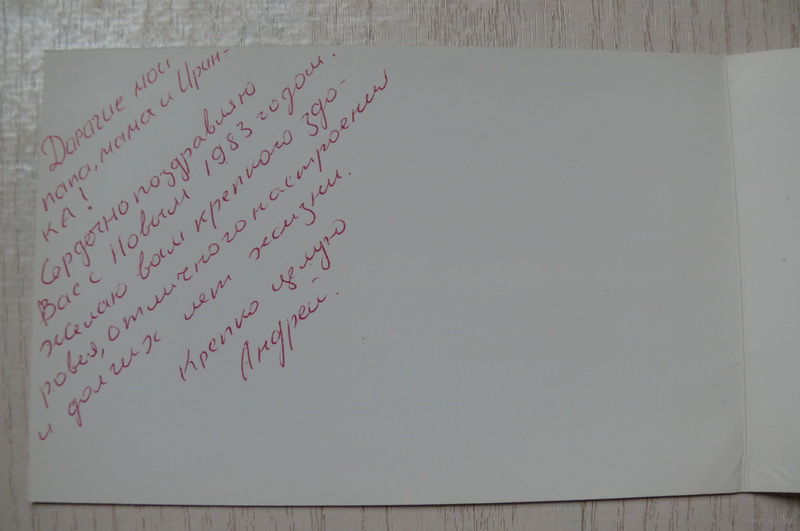 Дорогие мои
папа, мама и Ирин-
ка!
Сердечно поздравляю
Вас с Новым 1983 годом.
Желаю вам крепкого здо-
ровья, отличного настроения
и долгих лет жизни.
Крепко целую
Андрей.